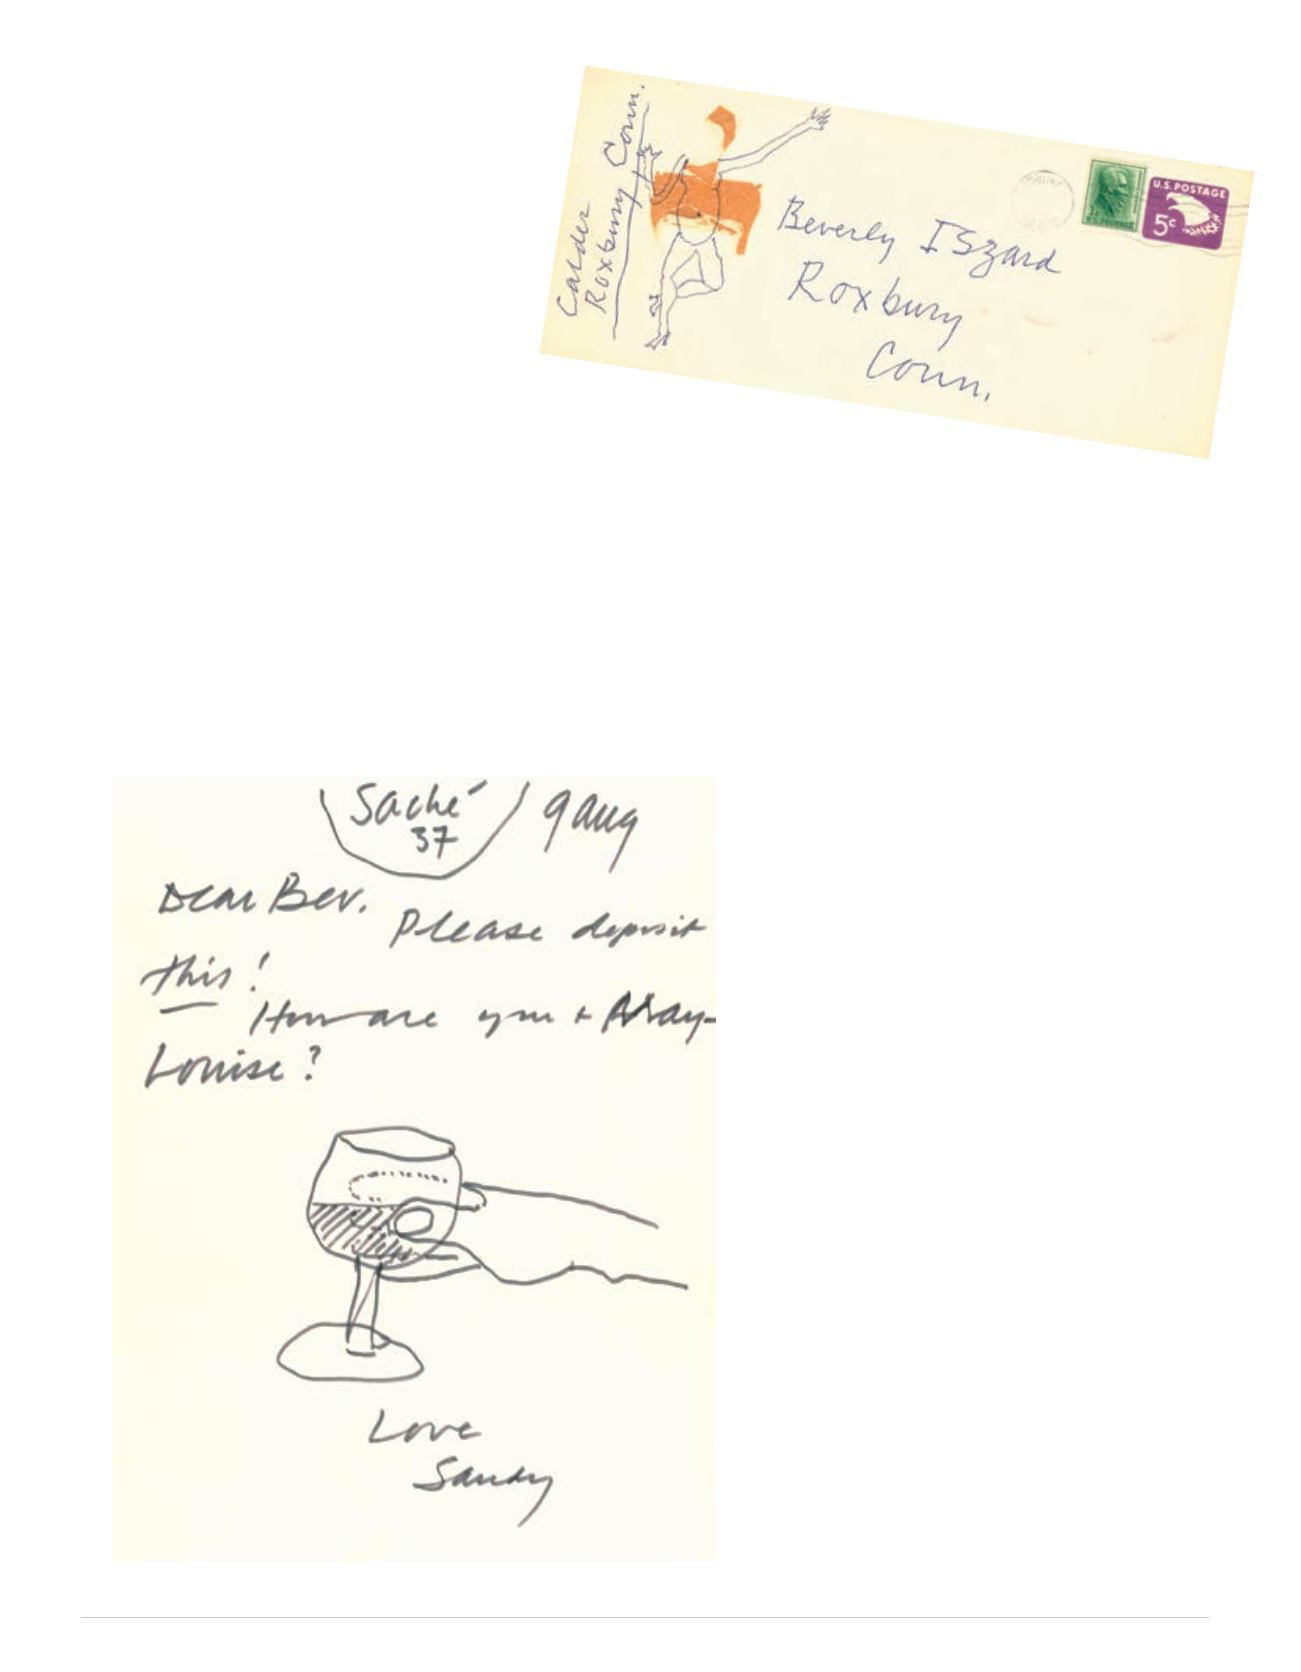 Calder
Roxbury Conn.
Beverly ISzard
Roxbury
Conn.
U.S. POSTAGE
5c
U.S. POSTAGE
Saché
37
9 Aug
Dear Bev.
Please deposit
this!
How are you + May-
Louise?
Love
Sandy